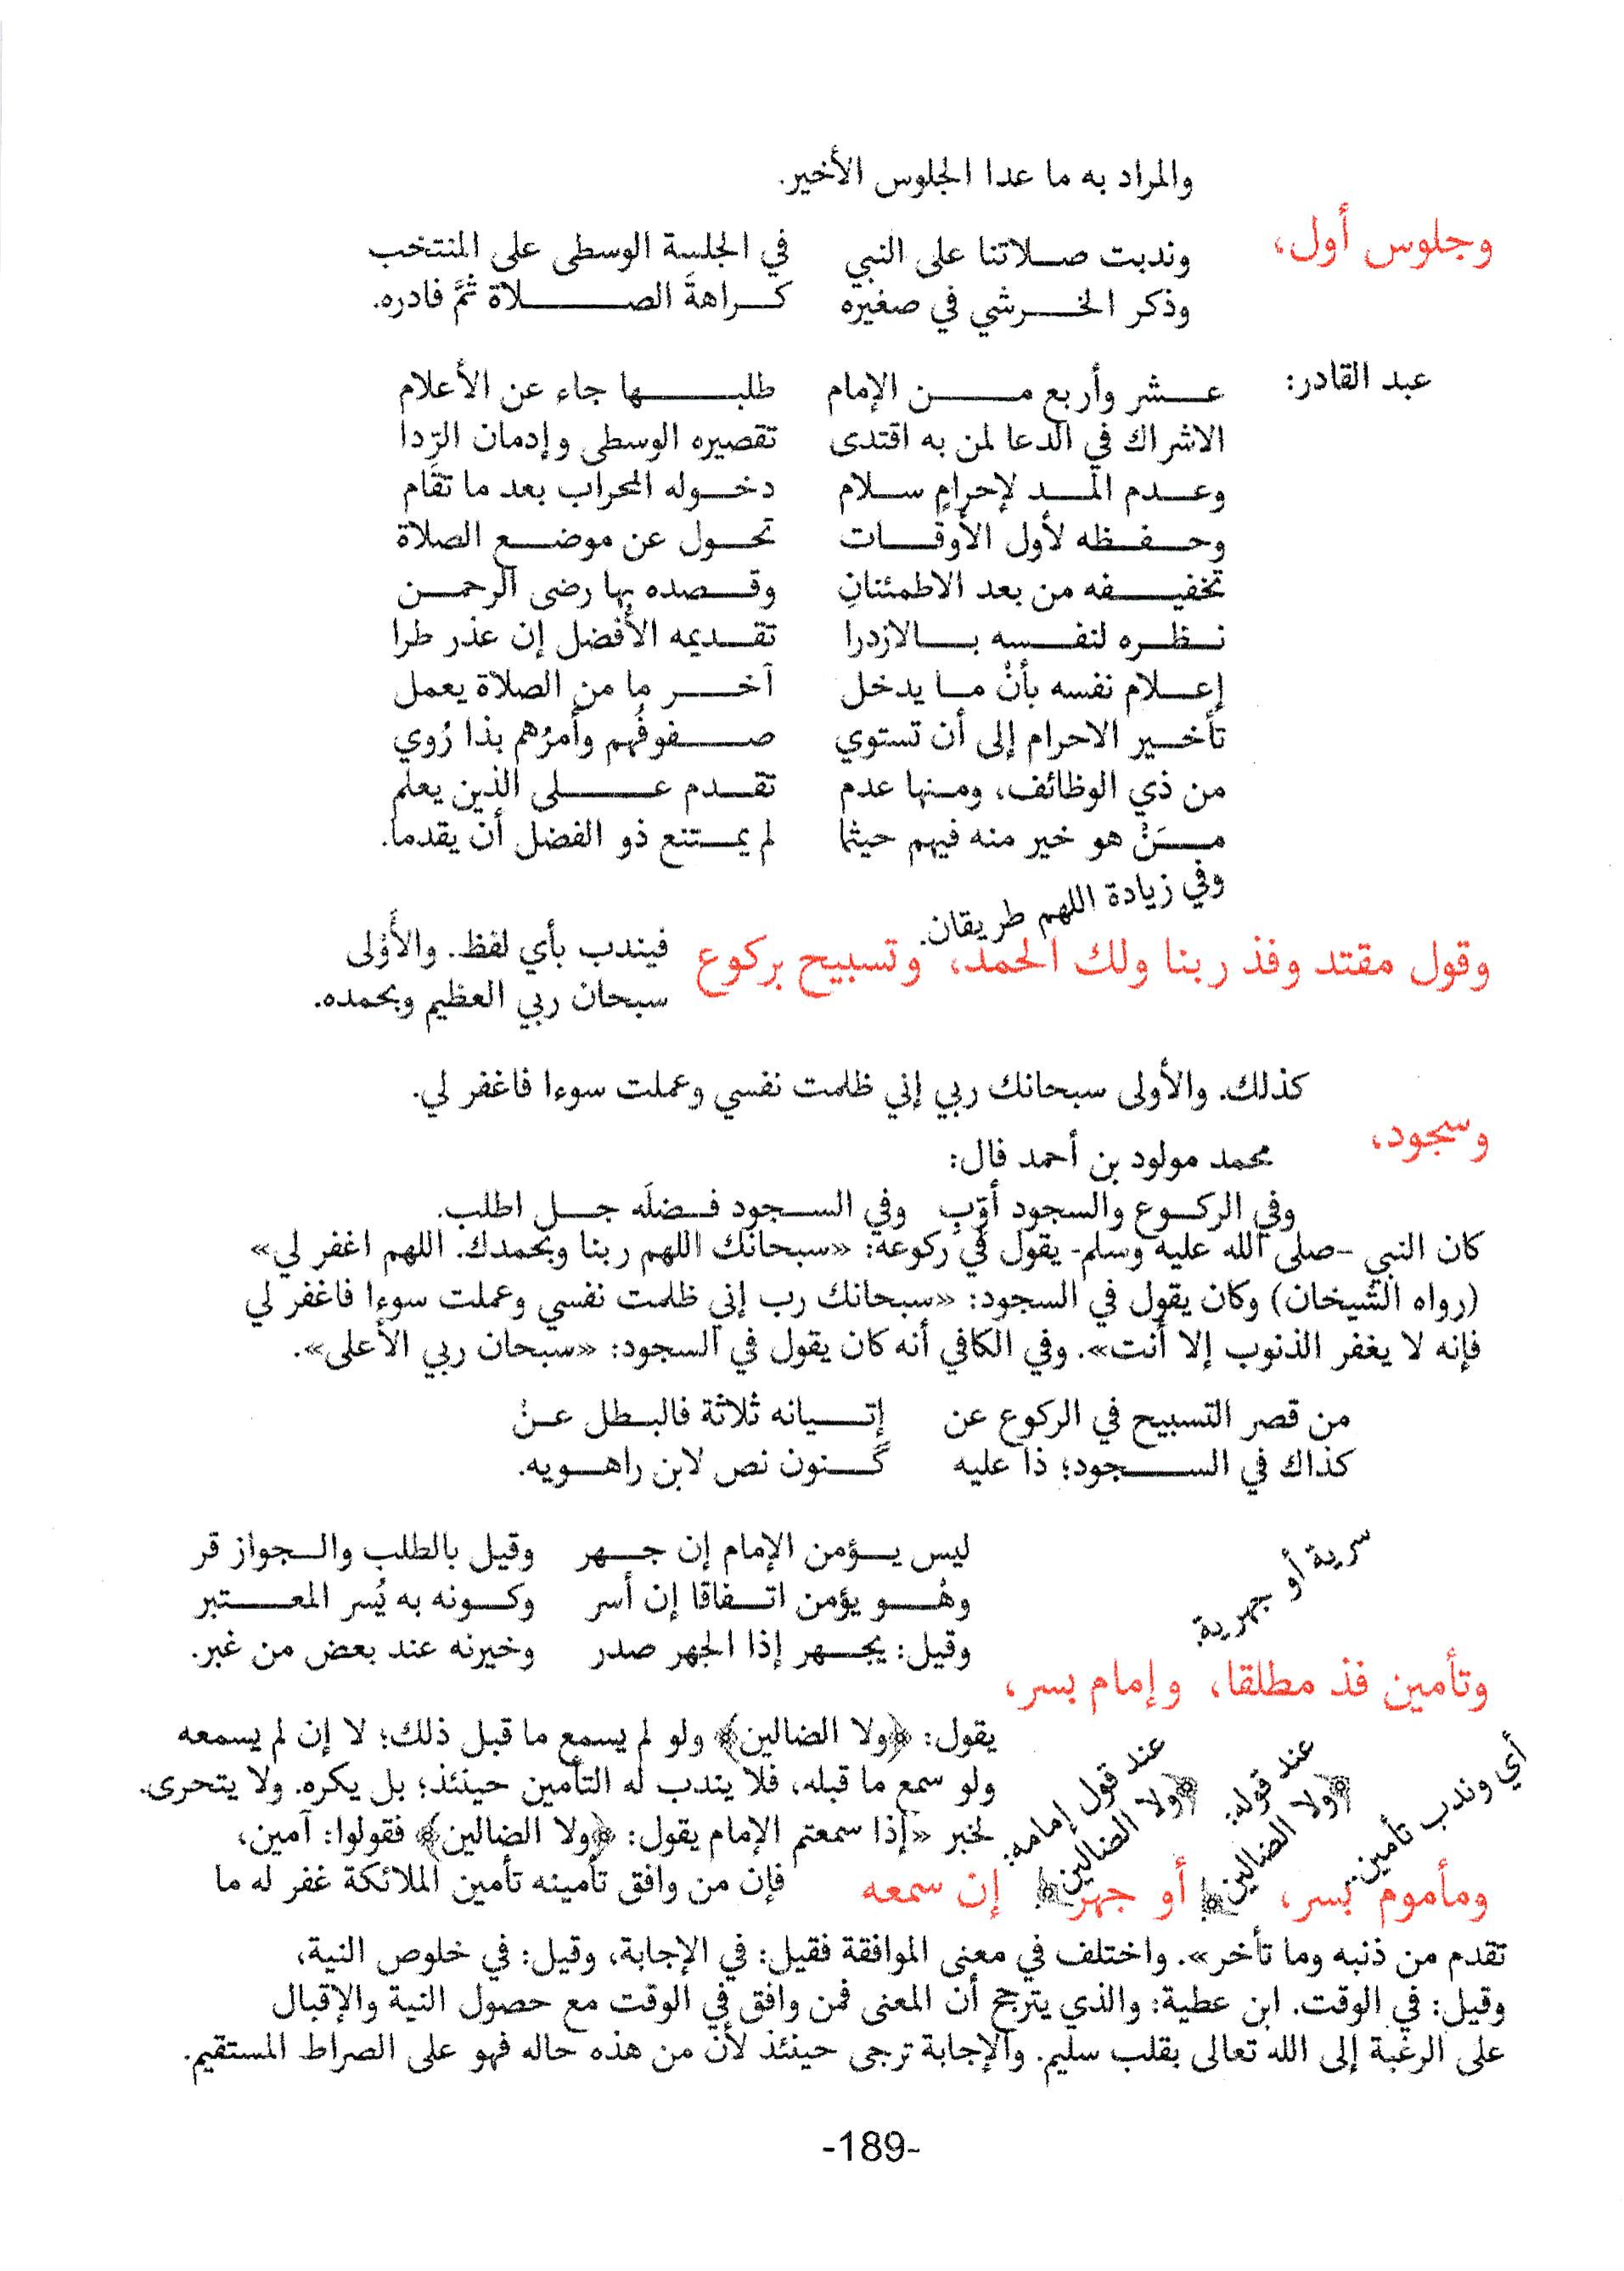 والمراد به ما عدا الجلوس الأخير.
وجلوس أول،
وندبت صلاتنا على النبي في الجلسة الوسطى على المنتخب
وذكر الخرشي في صغيره كراهةَ الصلاة ثمَّ فادره.
عبد القادر:
عشر وأربع من الإمام طلبها جاء عن الأعلام
الاشراك في الدعا لمن به اقتدى تقصيره الوسطى وإدمان الرِّدا
وعدم المد لإحرامٍ سلام دخوله المحراب بعد ما تقَام
وحفظه لأول الأوقات تحول عن موضع الصلاة
تخفيفه من بعد الاطمئنانِ وقصده بها رضى الرحمن
نظره لنفسه بالازدرا تقديمه الأفضل إن عذر طرا
إعلام نفسه بأنْ ما يدخل آخر ما من الصلاة يعمل
تأخير الاحرام إلى أن تستوي صفوفُهم وأمرُهم بذا رُوي
من ذي الوظائف، ومنها عدم تقدم على الذين يعلم
مَنْ هو خير منه فيهم حيثما لم يمتنع ذو الفضل أن يقدما.
وفي زيادة اللهم طريقان.
وقول مقتد وفذ ربنا ولك الحمد، وتسبيح بركوع
فيندب بأي لفظ. والأَوْلى
سبحان ربي العظيم وبحمده.
كذلك. والأولى سبحانك ربي إني ظلمت نفسي وعملت سوءا فاغفر لي.
وسجود،
محمد مولود بن أحمد فال:
وفي الركوع والسجود أوّبِ وفي السجود فضلَه جل اطلب.
كان النبي -صلى الله عليه وسلم- يقول في ركوعه: «سبحانك اللهم ربنا وبحمدك. اللهم اغفر لي»
(رواه الشيخان) وكان يقول في السجود: «سبحانك رب إني ظلمت نفسي وعملت سوءا فاغفر لي
فإنه لا يغفر الذنوب إلا أنت». وفي الكافي أنه كان يقول في السجود: «سبحان ربي الأعلى».
من قصر التسبيح في الركوع عن إتيانه ثلاثة فالبطل عنْ
كذاك في السجود؛ ذا عليه گنون نص لابن راهويه.
سرية أو جهرية.
ليس يؤمن الإمام إن جهر وقيل بالطلب والجواز قر
وهْو يؤمن اتفاقا إن أسر وكونه به يُسر المعتبر
وقيل: يجهر إذا الجهر صدر وخيرنه عند بعض من غبر.
وتأمين فذ مطلقا، وإمام بسر،
أي وندب تأمين.
عند قوله:
﴿ولا الضالين﴾
عند قول إمامه:
﴿ولا الضالين﴾
يقول: ﴿ولا الضالين﴾ ولو لم يسمع ما قبل ذلك؛ لا إن لم يسمعه
ولو سمع ما قبله، فلا يندب له التأمين حينئذ؛ بل يكره. ولا يتحرى.
لخبر «إذا سمعتم الإمام يقول: ﴿ولا الضالين﴾ فقولوا: آمين،
ومأموم بسر، أو جهر إن سمعه
فإن من وافق تأمينه تأمين الملائكة غفر له ما
تقدم من ذنبه وما تأخر». واختلف في معنى الموافقة فقيل: في الإجابة، وقيل: في خلوص النية،
وقيل: في الوقت. ابن عطية: والذي يترجح أن المعنى فمن وافق في الوقت مع حصول النية والإقبال
على الرغبة إلى الله تعالى بقلب سليم. والإجابة ترجى حينئذ لأن من هذه حاله فهو على الصراط المستقيم.
-189-